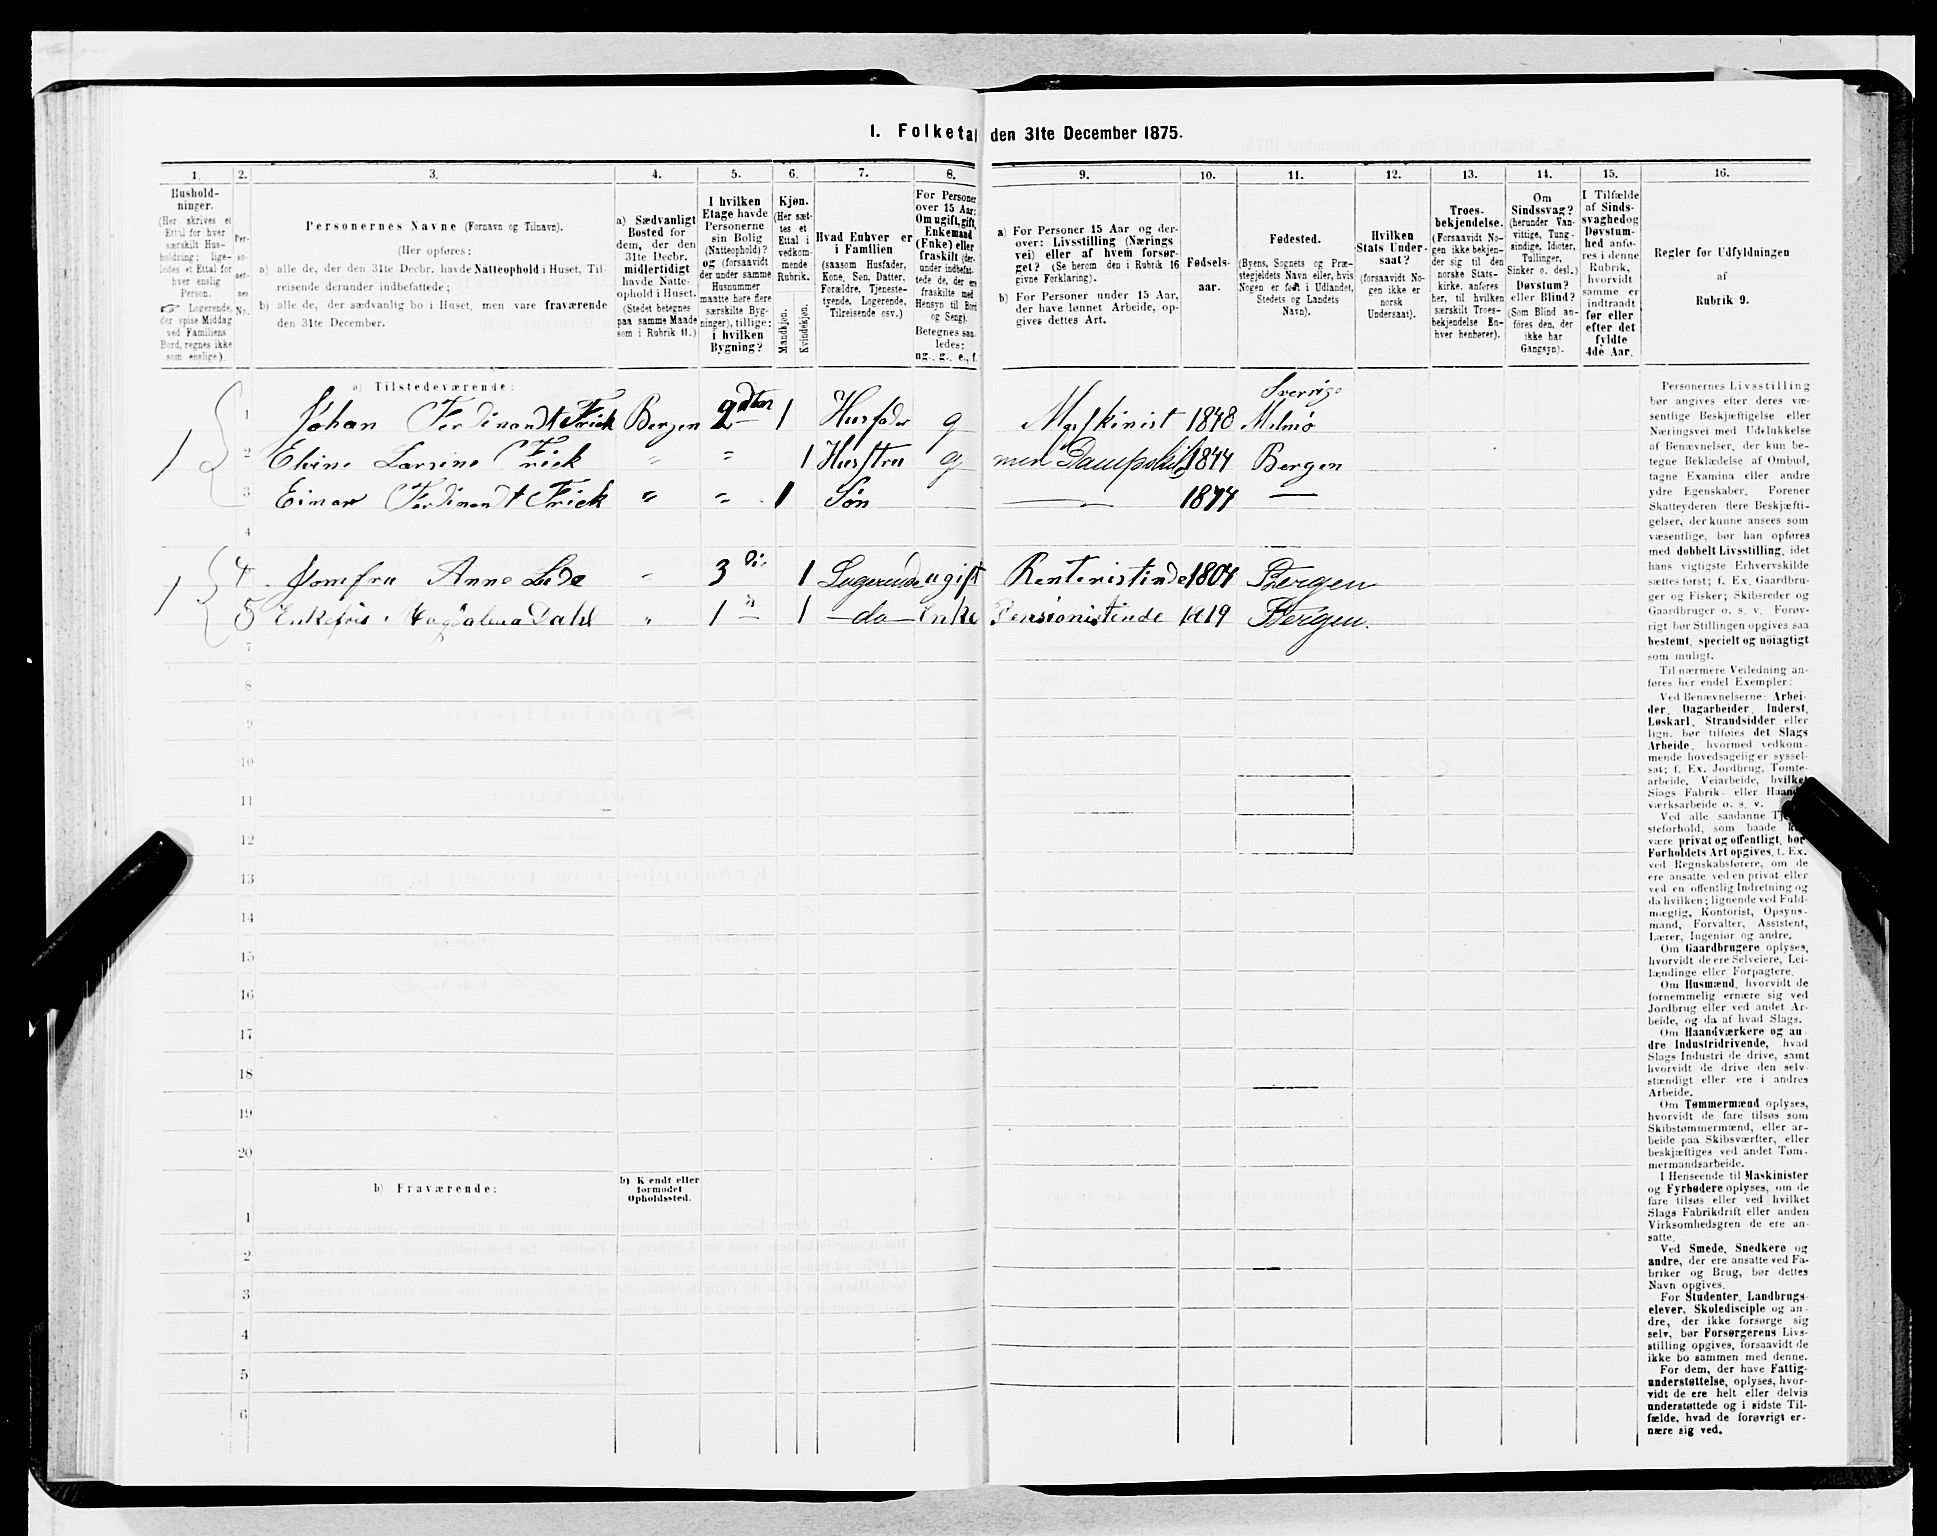 I. Folketal den 31te December 1875.
1. 2. 3. 4. 5. 6. 7. 8. 9. 10. 11. 12. 13. 14. 15. 16.
Hushold-
ninger.
(Her skrives et
Ettal for hver
særskilt Hus-
holdning; lige-
ledes et Ettal for
hver enslig
Person.
☞ Logerende,
der spise Middag
ved Familiens
Bord, regnes ikke
som enslige).
Per-
so-
ner-
nes
No.
Personernes Navne (Fornavn og Tilnavn).
(Her opføres:
a) alle de, der den 31te Decbr. havde Natteophold i Huset, Til-
reisende derunder indbefattede;
b) alle de, der sædvanlig bo i Huset, men vare fraværende
den 31te December.
a) Sædvanligt
Bosted for
dem, der den
31te Decbr.
midlertidigt
havde Natte-
ophold i Huset.
(Stedet betegnes
paa samme Maade
som i Rubrik 11.)
I hvilken
Etage havde
Personerne
sin Bolig
(Natteophold)?
og (forsaavidt
der under samme
Husnummer
maatte høre flere
særskilte Byg-
ninger), tillige:
i hvilken
Bygning?
Kjøn.
(Her sæt-
tes et
Ettal i
vedkom-
mende
Rubrik.
Mandkjøn.
Kvindekjøn.
Hvad Enhver er
i Familien
(saasom Husfader,
Kone, Søn, Datter,
Forældre, Tjeneste-
tyende, Logerende,
Tilreisende osv.)
For Personer
over 15 Aar:
Om ugift, gift,
Enkemand
(Enke) eller
fraskilt (der-
under indbefat-
tede de, der ere
fraskilte med
Hensyn til Bord
og Seng).
Betegnes saa-
ledes:
ug., g., e., f.
a) For Personer 15 Aar og der-
over: Livsstilling (Nærings
vei) eller af hvem forsør-
get? (Se herom den i Rubrik 16
givne Forklaring).
b) For Personer under 15 Aar,
der have lønnet Arbeide, op-
gives dettes Art.
Fødsels-
aar.
Fødested.
(Byens, Sognets og Præ-
stegjeldets Navn eller, hvis
Nogen er født i Udlandet,
Stedets og Landets
Navn).
Hvilken
Stats Under-
saat?
(forsaavidt No-
gen ikke er
norsk
Undersaat).
Troes-
bekjendelse.
(Forsaavidt No-
gen ikke bekjen-
der sig til den
norske Stats-
kirke, anføres
her, til hvilken
særskilt Troes-
bekjendelse En-
hver henhører).
Om
Sindssvag?
(herunder Van-
vittige, Tung-
sindige, Idioter,
Tullinger,
Sinker o. desl.)
Døvstum?
eller Blind?
(Som Blind an-
føres den, der
ikke har
Gangsyn).
I Tilfælde
af Sinds-
svaghed og
Døvstum-
hed anfø-
res i denne
Rubrik,
hvorvidt
samme er
indtraadt
før eller
efter det
fyldte
4de Aar.
Regler før Udfyldningen
af
Rubrik 9.
a) Tilstedeværende:
Sverrige
1 1 Johan Ferdinandt Frick Bergen 2den 1 Husfader g Maskinist 1848 Malmø
2 Elvine Larsine Frick " " 1 Hustru g med Dampskib 1844 Bergen
3 Einar Ferdinandt Frick " " 1 Søn — 1874 —
4
1 4 Jomfru Anne Lida " 3di 1 Logerende ugift Rentenistinde 1804 Bergen
5 Enkefru Magdalena Dahl " 1 " 1 do Enke Pensionistinde 1819 Bergen.
7
8
9
10
11
12
13
14
15
16
17
18
19
20
b) Fraværende: b) Kjendt eller
formodet
Opholdssted.
1
2
3
4
5
6
Personernes Livsstilling
bør angives efter deres væ-
sentlige Beskjæftigelse eller
Næringsvei med Udelukkelse
af Benævnelser, der kun be-
tegne Beklædelse af Ombud,
tagne Examina eller andre
ydre Egenskaber. Forener
Skatteyderen flere Beskjæfti-
gelser, der kunne ansees som
væsentlige, bør han opføres
med dobbelt Livsstilling, idet
hans vigtigste Erhvervskilde
sættes først; f. Ex. Gaardbru-
ger og Fisker; Skibsreder og
Gaardbruger o. s. v. Forøv-
rigt bør Stillingen opgives saa
bestemt, specielt og nøiagtigt
som muligt.
Til nærmere Veiledning an-
føres her endel Exempler:
Ved Benævnelserne: Arbei-
der, Dagarbeider, Inderst,
Løskarl, Strandsidder eller
lign. bør tilføies det Slags
Arbeide, hvormed vedkom-
mende hovedsagelig er syssel-
sat; f. Ex. Jordbrug, Tømte-
arbeide, Veiarbeide, hvilket
Slags Fabrik- eller Haand-
værksarbeide o. s. v.
Ved alle saadanne
steforhold, som baade
være privat og offentligt, bør
Forholdets Art opgives, f. Ex.
ved Regnskabsførere, om de
ere ansatte ved en privat eller
ved en offentlig Indretning og
da hvilken; lignende ved Fuld-
mægtig, Kontorist, Opsyns-
mand, Forvalter, Assistent,
Lærer, Ingeniør og andre.
Om Gaardbrugere oplyses,
hvorvidt de ere Selveiere, Lei-
lændinge eller Forpagtere.
Om Husmænd, hvorvidt de
fornemmelig ernære sig ved
Jordbrug eller ved andet Ar-
beide, og da af hvad Slags.
Om Haandværkere og an-
dre Industridrivende, hvad
Slags Industri de drive, samt
hvorvidt de drive den selv-
stændigt eller ere i andres
Arbeide.
Om Tømmermænd oplyses,
hvorvidt de fare tilsøs som
Skibstømmermænd, eller ar-
beide paa Skibsværfter, eller
beskjæftiges ved andet Tøm-
mermandsarbeide.
I Henseende til Maskinister
og Fyrbødere oplyses, om de
fare tilsøs eller ved hvilket
Slags Fabrikdrift eller anden
Virksomhedsgren de ere an-
satte.
Ved Smede, Snedkere og
andre, der ere ansatte ved Fa-
briker og Brug, bør dettes
Navn opgives.
For Studenter, Landbrugs-
elever, Skoledisciple og an-
dre, der ikke forsørge sig
selv, bør Forsørgerens Livs-
stilling opgives, forsaavidt de
ikke bo sammen med denne.
For dem, der have Fattig-
understøttelse, oplyses, hvor-
vidt de ere helt eller delvis
understøttede og i sidste Til-
fælde, hvad de forøvrigt er-
nære sig ved.